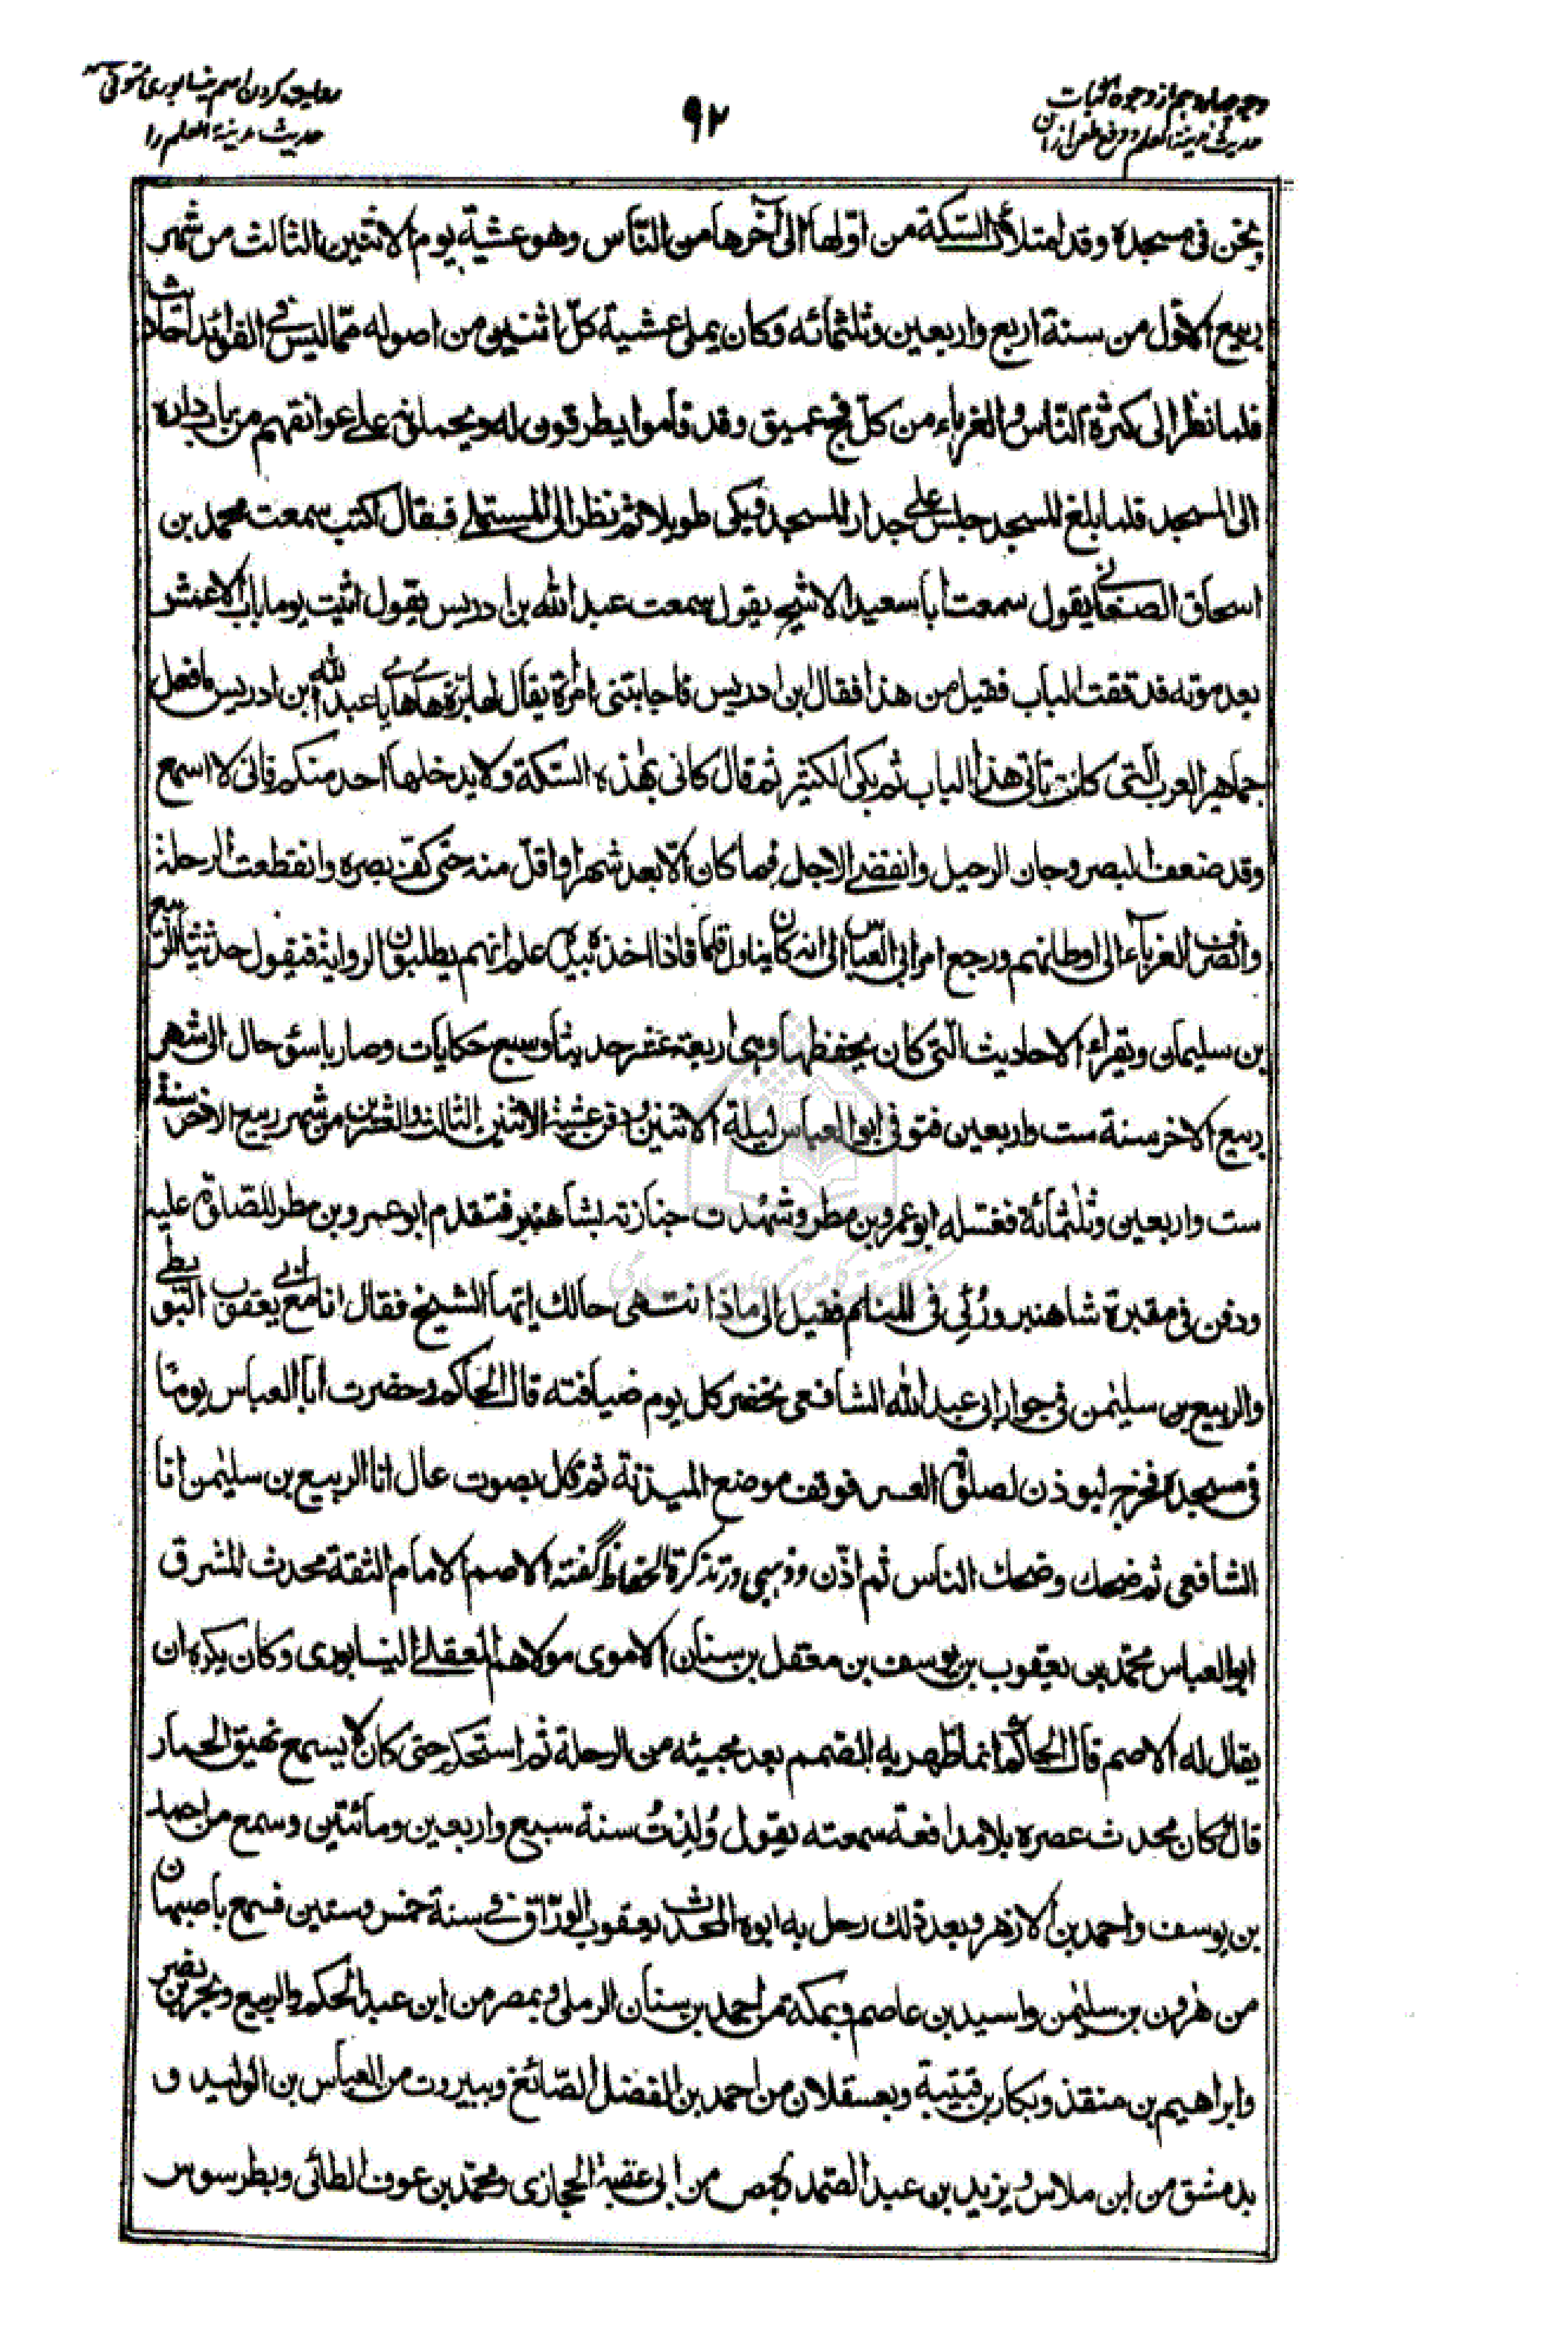 وجه چهاردهم از وجوه اثبات
حدیث مدینة العلم و رفع طعن از آن
۹۲
روایت کردن اصم نیسابوری متوفی
حدیث مدینة العلم را
ونحن فی مسجده وقد امتلأت السّکة من اوّلها الی آخرها من النّاس وهو عشیّة یوم الاثنین الثالث من شهر
ربیع الاوّل من سنة اربع واربعین وثلثمائه وکان یملی عشیة کلّ اثنین من اصوله ممّا لیس فی الفوائد احادیث
فلما نظر الی کثرة النّاس والغرباء من کلّ فج عمیق وقد قاموا یطرقون له ویحملونه علی عواتقهم من باب داره
الی المسجد فلما بلغ المسجد جلس علی جدار المسجد فبکی طویلا ثم نظر الی المستملی فقال اکتب سمعت محمد بن
اسحاق الصغانی یقول سمعت أبا سعید الاشج یقول سمعت عبد الله بن ادریس یقول اتیت یوما باب الاعمش
بعد موته فدققت الباب فقیل من هذا فقال ابن ادریس فاجابتنی امرأة یقال لها برّة هاهای یا عبد الله ابن ادریس ما فعل
جماهیر العرب التی کانت تأتی هذا الباب ثم بکی الکثیر ثم قال کانی بهذه السّکة ولا یدخلها احد منکم فانی لا اسمع
وقد ضعف البصر وحان الرحیل وانقضی الاجل فما کان الّا بعد شهر او اقل منه حتی کفّ بصره وانقطعت الرحلة
وانصرف الغرباء الی اوطانهم ورجع امر ابی العباس الی انه کان یناول قلما فاذا اخذه بیده علم انهم یطلبون الروایة فیقول حدثنا الربیع
بن سلیمان ویقراء الاحادیث التی کان یحفظها وهی اربعة عشر حدیثا وسبع حکایات وصار باسوء حال الی شهر
ربیع الاخر سنة ست واربعین فتوفی ابو العباس لیلة الاثنین ودفن عشیة الاثنین الثالث والعشرین من شهر ربیع الاخر سنة
ست واربعین وثلثمائة فغسله ابو عمرو بن مطر وشهدت جنازته بشاهنبر فتقدم ابو عمرو بن مطر للصّلوة علیه
ودفن فی مقبرة شاهنبر ورُئی فی المنام فقیل الی ماذا انتهی حالک ایّها الشیخ فقال انا مع ابی یعقوب البویطی
والربیع بن سلیمن فی جوار ابی عبد الله الشافعی نحضر کل یوم ضیافته قال الحاکم وحضرت ابا العباس یومًا
فی مسجده فخرج لیوذن لصلوة العصر فوقف موضع المیذنة ثم قال بصوت عال انا الربیع بن سلیمن انا
الشافعی ثم ضحک وضحک الناس ثم اذّن وذهبی در تذکرة الحفاظ گفته الاصم الامام الثقة محدث المشرق
ابو العباس محمّد بن یعقوب بن یوسف بن معقل بن سنان الاموی مولاهم المعقلی النیسابوری وکان یکره ان
یقال له الاصم قال الحاکم انما ظهر به الصمم بعد مجیئه من الرحلة ثم استحکم حتی کان لا یسمع نهیق الحمار
قال کان محدث عصره بلا مدافعة سمعته یقول وُلِدتُ سنة سبع واربعین ومائتین وسمع من احمد
بن یوسف واحمد بن الازهر وبعد ذلک رحل به ابوه المحدث یعقوب الورّاق فی سنة خمس وستین فسمع باصبهان
من هرون بن سلیمن واسید بن عاصم وبمکة من احمد بن سنان الرملی وبمصر من ابن عبد الحکم والربیع وبحر بن نصر
وابراهیم بن منقذ وبکار بن قتیبة وبعسقلان من احمد بن الفضل الصّائغ وببیروت من العباس بن الولید و
بدمشق من ابن ملاس ویزید بن عبد الصّمد وبحمص من ابی عتبة الحجازی ومحمّد بن عوف الطائی وبطرسوس